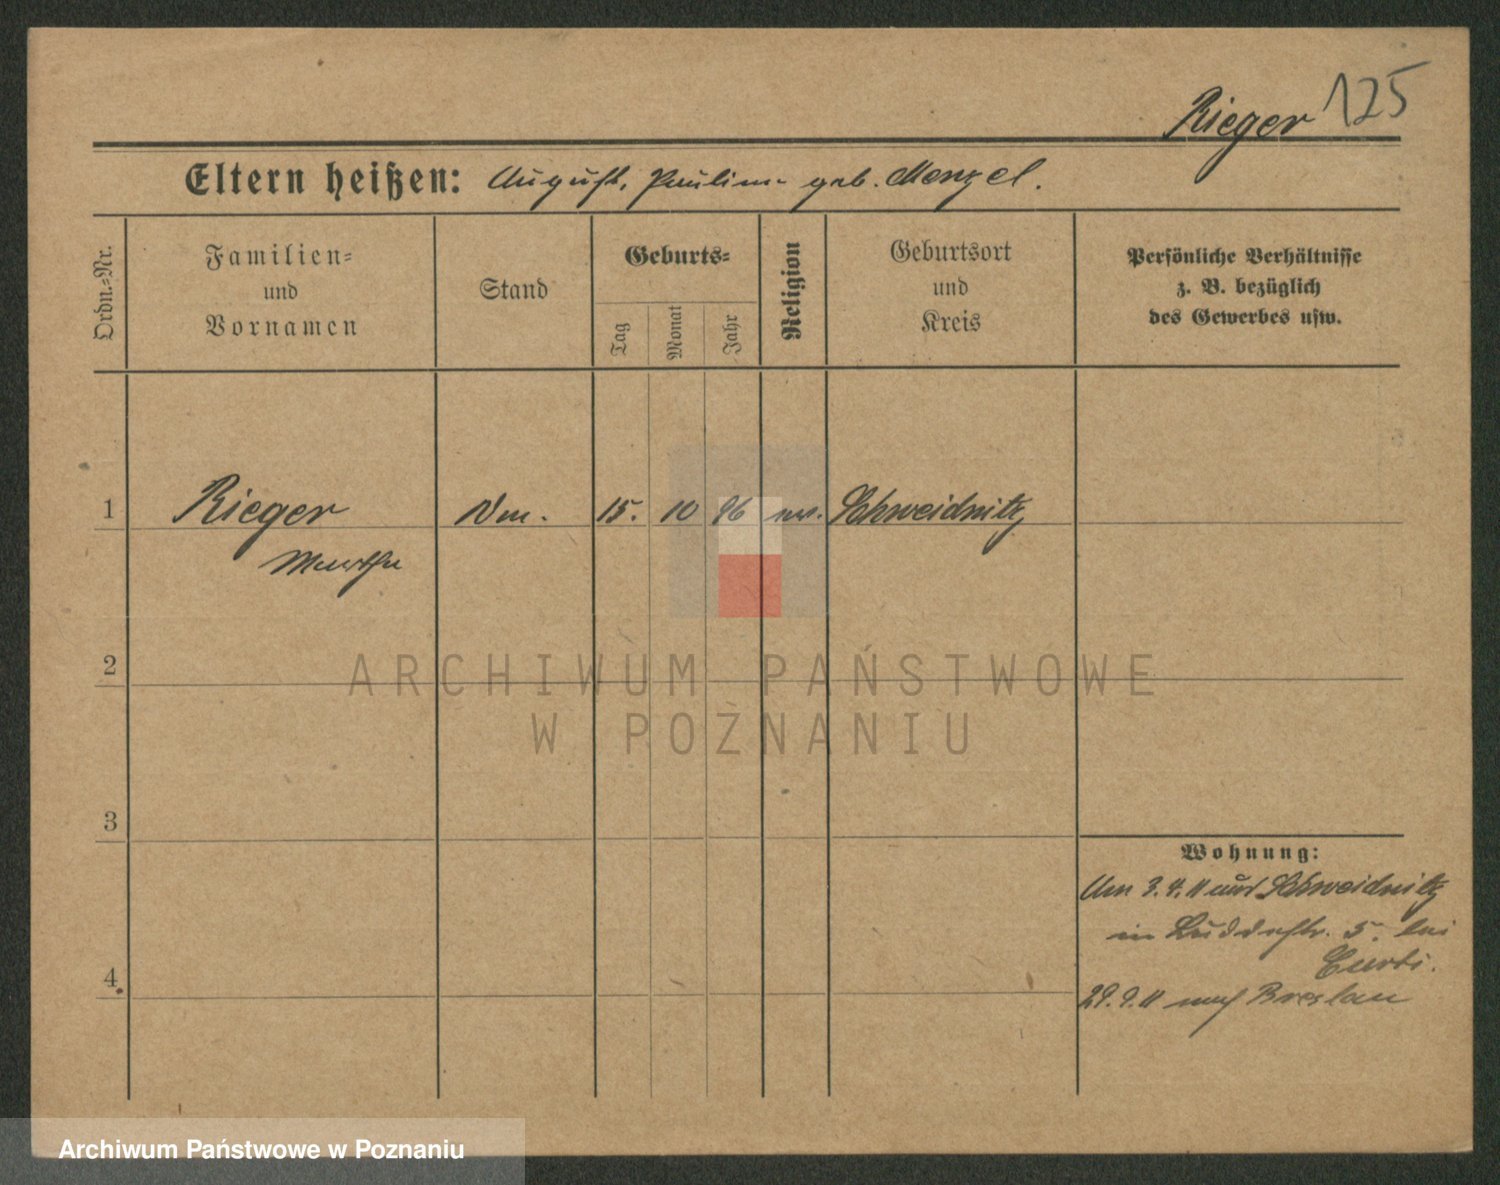 Rieger 125
Eltern heißen: August, Pauline geb. Menzel.
Ordn.-Nr.
Familien-
und
Vornamen
Stand
Geburts-
Tag
Monat
Jahr
Religion
Geburtsort
und
Kreis
Persönliche Verhältnisse
z. B. bezüglich
des Gewerbes usw.
1 Rieger 15. 10 96 Schweidnitz
Martha
2
ARCHIWUM PAŃSTWOWE
W POZNANIU
3
Wohnung:
Am 3.4.11 aus Schweidnitz
in 5. bei
4
29.9.11 nach Breslau
Archiwum Państwowe w Poznaniu